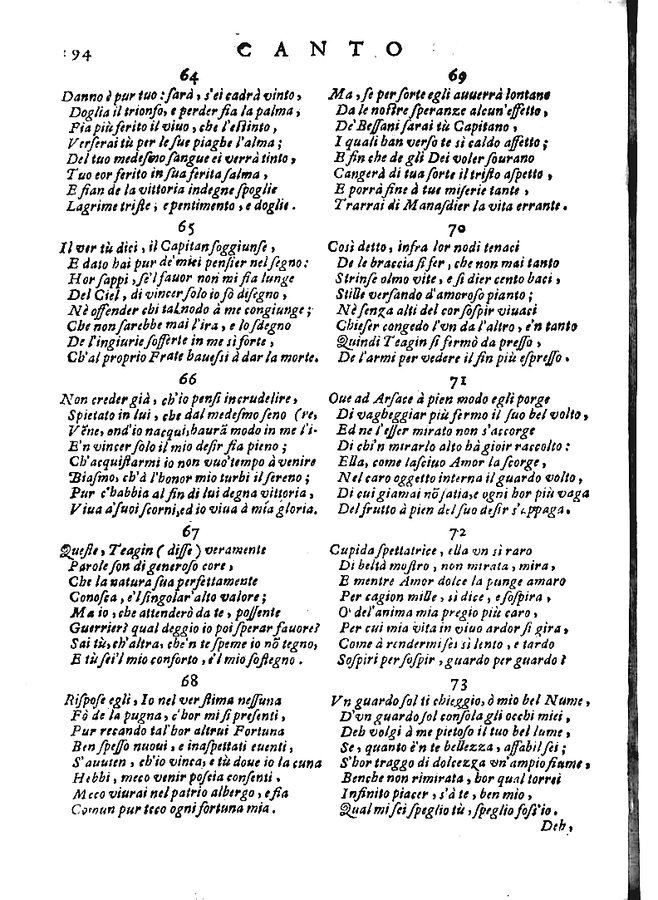 94
CANTO
64
Danno è pur tuo: sarà, s'ei cadrà vinto,
Doglia il trionfo, e perder fia la palma,
Fia più ferito il viuo, che l'estinto,
Verserai tù per le sue piaghe l'alma;
Del tuo medesmo sangue ei verrà tinto,
Tuo cor ferito in sua ferita salma,
E fian de la vittoria indegne spoglie
Lagrime triste, e pentimento, e doglie.
65
Il ver tù dici, il Capitan soggiunse,
E dato hai pur de' miei pensier nel segno:
Hor sappi, se'l fauor non mi fia lunge
Del Ciel, di vincer solo io fò disegno,
Nè offender chi tal nodo à me congiunge;
Che non sarebbe mai l'ira, e lo sdegno
De l'ingiurie sofferte in me sì forte,
Ch'al proprio Frate hauessi à dar la morte.
66
Non creder già, ch'io pensi incrudelire,
Spietato in lui, che dal medesmo seno (re,
Vẽne, ond'io nacqui, haurà modo in me l'i-
E'n vincer solo il mio desir fia pieno;
Ch'acquistarmi io non vuo' tempo à venire
Biasmo, ch'à l'honor mio turbi il sereno;
Pur c'habbia al fin di lui degna vittoria,
Viua a' suoi scorni, ed io viua à mia gloria.
67
Queste, Teagin (disse) veramente
Parole son di generoso core,
Che la natura sua perfettamente
Conosca, e'l singolar' alto valore;
Ma io, che attenderò da te, possente
Guerrier? qual deggio io poi sperar fauore?
Sai tù, ch'altra, che'n te speme io nõ tegno,
E tù sei'l mio conforto, e'l mio sostegno.
68
Rispose egli, Io nel ver stima nessuna
Fò de la pugna, c'hor mi si presenti,
Pur recando tal'hor altrui Fortuna
Ben spesso nuoui, e inaspettati euenti,
S'auuien, ch'io vinca, e tù doue io la cuna
Hebbi, meco venir poscia consenti,
Meco viurai nel patrio albergo, e fia
Comun pur teco ogni fortuna mia.
69
Ma, se per sorte egli auuerrà lontano
Da le nostre speranze alcun'effetto,
De' Bessani sarai tù Capitano,
I quali han verso te sì caldo affetto;
E fin che de gli Dei voler sourano
Cangerà di tua sorte il tristo aspetto,
E porrà fine à tue miserie tante,
Trarrai di Manasdier la vita errante.
70
Così detto, infra lor nodi tenaci
De le braccia si fer, che non mai tanto
Strinse olmo vite, e si dier cento baci,
Stille versando d'amoroso pianto;
Nè senza alti del cor sospir viuaci
Chieser congedo l'vn da l'altro, e'n tanto
Quindi Teagin si fermò da presso,
De l'armi per vedere il fin più espresso.
71
Oue ad Arsace à pien modo egli porge
Di vagheggiar più fermo il suo bel volto,
Ed ne l'esser mirato non s'accorge
Di chi'n mirarlo alto hà gioir raccolto:
Ella, come lasciuo Amor la scorge,
Nel caro oggetto interna il guardo volto,
Di cui giamai nõ satia, e ogni hor più vaga
Del frutto à pien del suo desir s'appaga.
72
Cupida spettatrice, ella vn sì raro
Di beltà mostro, non mirata, mira,
E mentre Amor dolce la punge amaro
Per cagion mille, sì dice, e sospira,
O' de l'anima mia pregio più caro,
Per cui mia vita in viuo ardor si gira,
Come à rendermi sei sì lento, e tardo
Sospiri per sospir, guardo per guardo?
73
Vn guardo sol ti chieggio, ò mio bel Nume,
D'vn guardo sol consola gli occhi miei,
Deh volgi à me pietoso il tuo bel lume,
Se, quanto è'n te bellezza, affabil sei;
S'hor traggo di dolcezza vn'ampio fiume,
Benche non rimirata, hor qual torrei
Infinito piacer, s'à te, ben mio,
Qual mi sei speglio tù, speglio foss'io.
Deh,